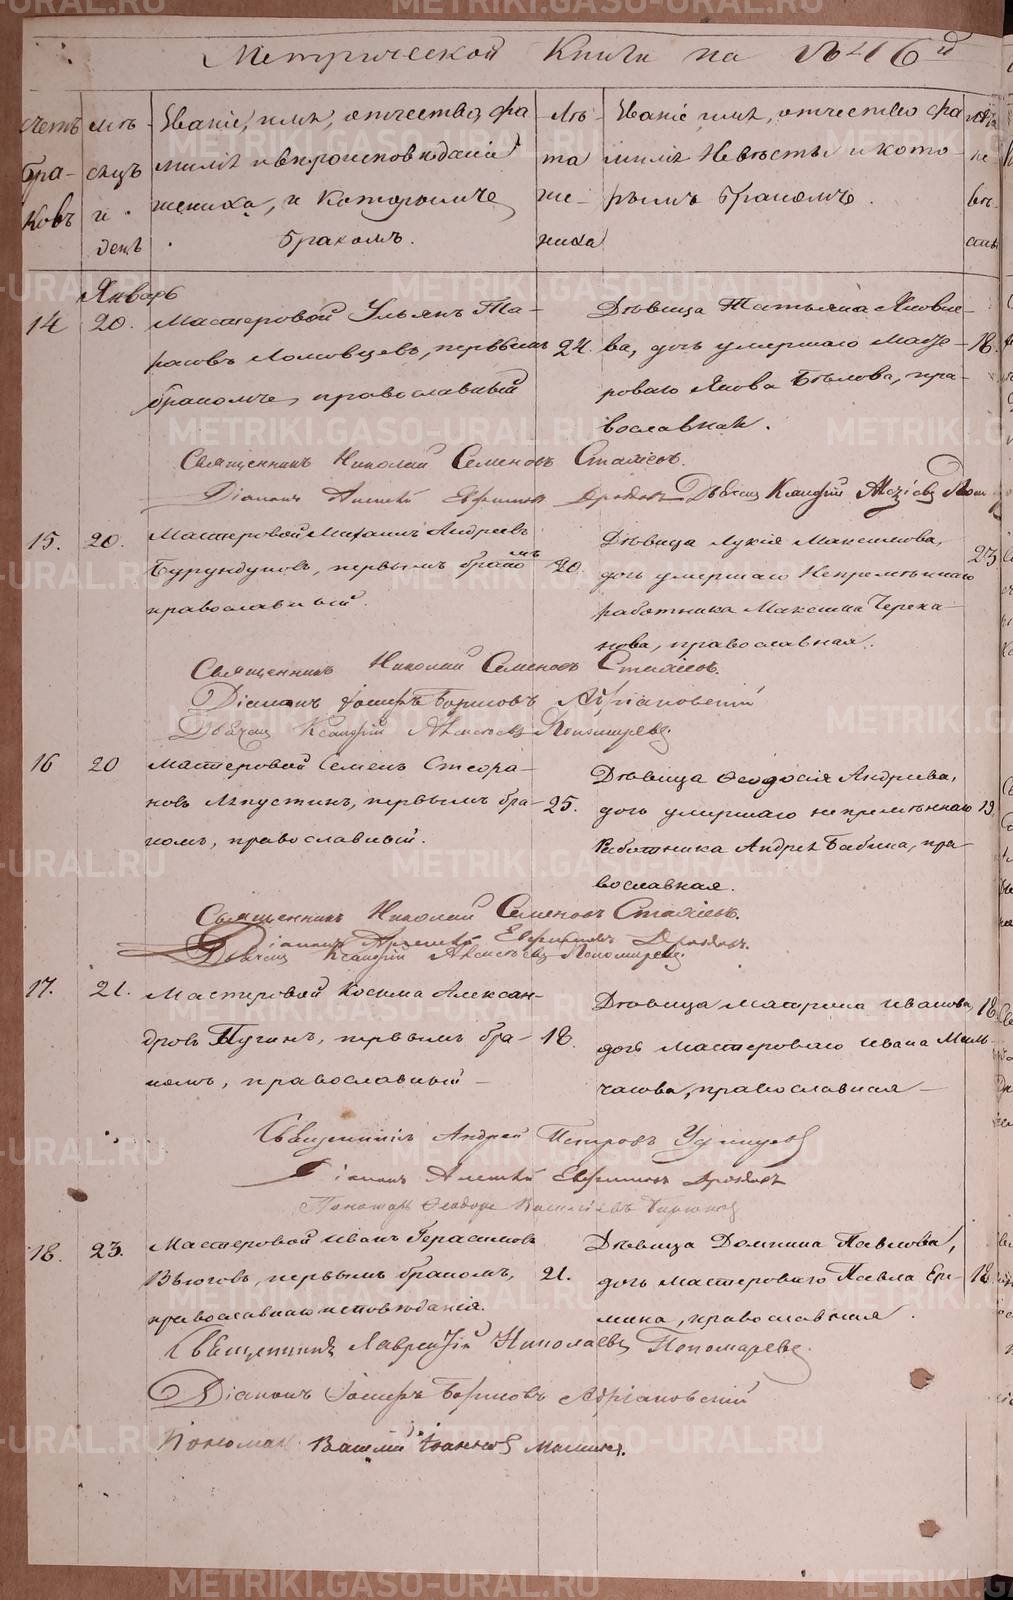 Метрической Книги на
счетъ браковъ
мѣсяцъ и день
Званіе, имя, отчество, фамилія и вѣроисповѣданіе жениха, и которымъ бракомъ.
Лѣта жениха
Званіе имя, отчество фамилія Невѣсты и которымъ бракомъ.
лѣта невѣсты
Январь
14 20.
Мастеровой Ульянъ Та-
расовъ Ломовцевъ, первымъ
бракомъ, православный
24.
Дѣвица Татьяна Яковле-
ва, дочь умершаго Масте-
роваго Якова Бѣлова, пра-
вославная.
18.
Священникъ Николай Семеновъ
Діаконъ Алексей
15. 20.
Мастеровой Михаилъ Андреевъ
Бурундуковъ, первымъ бракомъ
православный.
20.
Дѣвица Лукія Максимова,
дочь умершаго Непремѣннаго
работника Максима Черека-
нова, православная.
23
Священникъ Николай Семеновъ
Діаконъ Іосифъ Борисовъ Адріановскій
Пономаревъ
16 20
Мастеровой Семенъ Стефа-
новъ Лапустинъ, первымъ бра-
комъ, православный.
25.
Дѣвица Ѳеодосія Андреева,
дочь умершаго непремѣннаго
Работника Андрея Бабина, пра-
вославная.
19.
Священникъ Николай Семеновъ
Діаконъ Алексей
Пономаревъ
17. 21.
Мастеровой Косьма Алексан-
дровъ Пугинъ, первымъ бра-
комъ, православный
18.
Дѣвица Матрена Иванова,
дочь Мастероваго Ивана Миль-
чакова, православная
18
Священникъ Андрей Петровъ
Діаконъ Алексей
Пономарь Ѳеодоръ Василіевъ
18. 23.
Мастеровой Иванъ Герасимовъ
Вьюговъ, первымъ бракомъ,
православнаго исповѣданія.
21.
Дѣвица Домнина Павлова,
дочь Мастероваго Павла Ере-
мина, православная.
18.
Священникъ Лаврентій Николаевъ Пономаревъ
Діаконъ Іосифъ Борисовъ Адріановскій
Пономарь Василій
METRIKI.GASO-URAL.RU